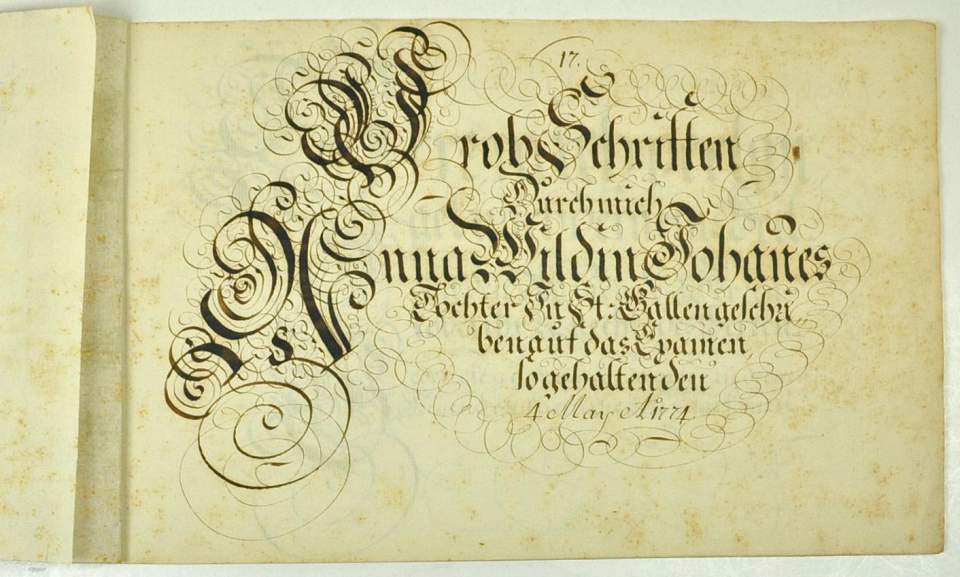 17.
Prob Schrifften
Durch mich
Anna Wildin Johañes
Tochter In St: Gallen geschri
ben auf das Examen
so gehalten den
4 May Aº 1774